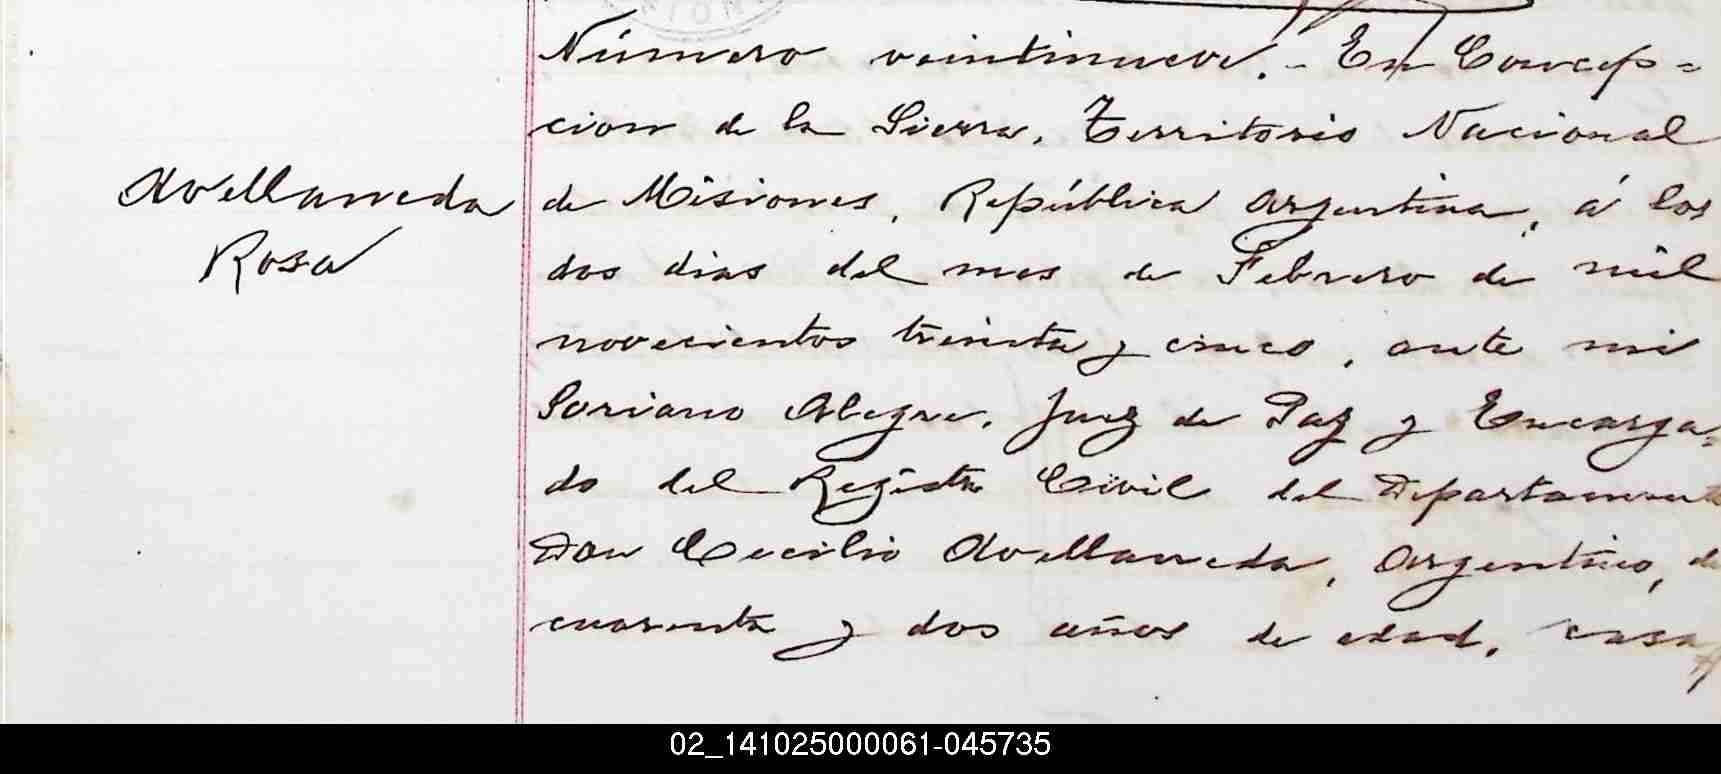 Número veintinueve. - En Concep=
cion de la Sierra, Territorio Nacional
Avellaneda
Rosa
de Misiones, República Argentina, á los
dos dias del mes de Febrero de mil
novecientos treinta y cinco, ante mi
Soriano Alegre, Juez de Paz y Encarga=
do del Registro Civil del Departamento
Don Cecilio Avellaneda, Argentino, de
cuarenta y dos años de edad, casa
02_141025000061-045735